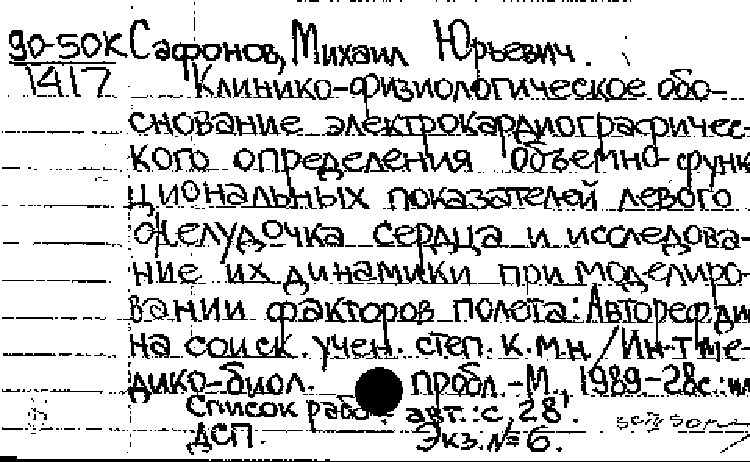 90-50К Сафонов, Михаил Юрьевич.
1417 Клинико-физиологическое обо-
снование электрокардиографичес-
кого определения объемно-функ
циональных показателей левого
желудочка сердца и исследова-
ние их динамики при моделиро-
вании факторов полета: Автореф. ди
на соиск. учен. степ. к.м.н. / Ин-т ме-
дико-биол. пробл. - М., 1989. - 28с.: ил
Список работ авт.: с. 28.
ДСП. Экз. № 6.